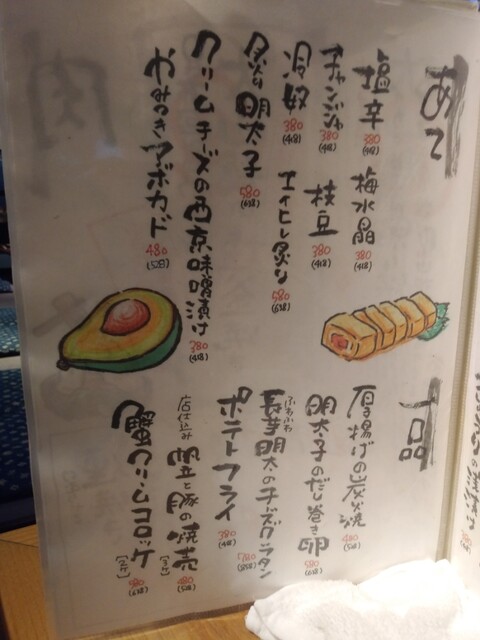 あて
塩辛 380 (418)
梅水晶 380 (418)
チャンジャ 380 (418)
枝豆 380 (418)
冷奴 380 (418)
エイヒレ炙り 580 (638)
炙り明太子 580 (638)
クリームチーズの西京味噌漬け 380 (418)
やみつきアボカド 480 (528)
一品
厚揚げの炭火焼 480 (528)
明太子のだし巻き卵 580 (638)
ふわふわ
長芋明太のチーズグラタン
ポテトフライ 380 (418)
店仕込み 帆立と豚の焼売 [2ケ] 480 (528)
蟹クリームコロッケ [2ケ] 580 (638)